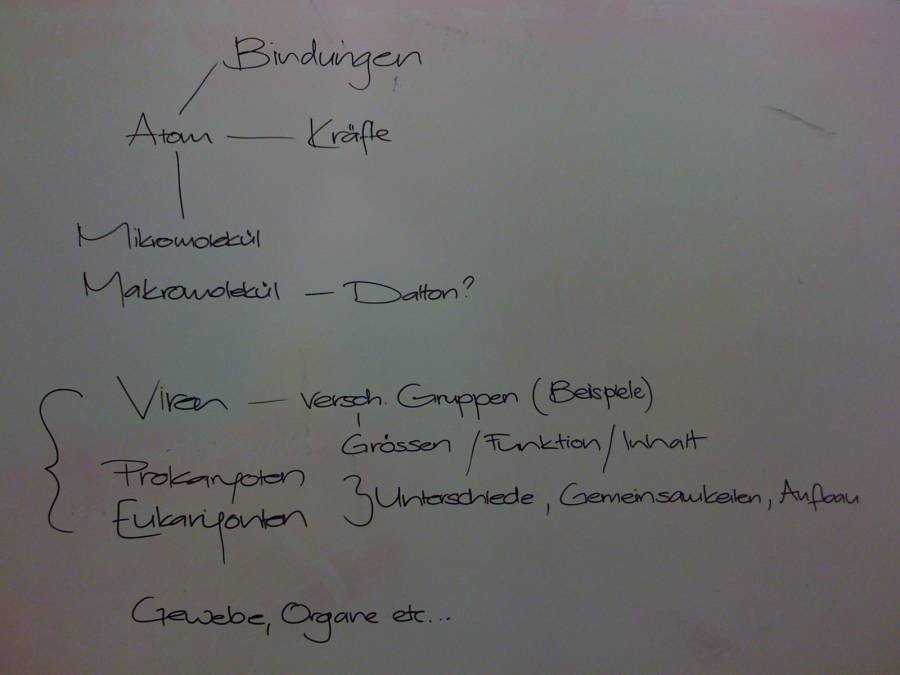 Bindungen
Atom — Kräfte
Mikromolekül
Makromolekül — Dalton?
Viren — versch. Gruppen (Beispiele)
Grössen / Funktion / Inhalt
Prokaryoten
Eukaryonten } Unterschiede, Gemeinsamkeiten, Aufbau
Gewebe, Organe etc...